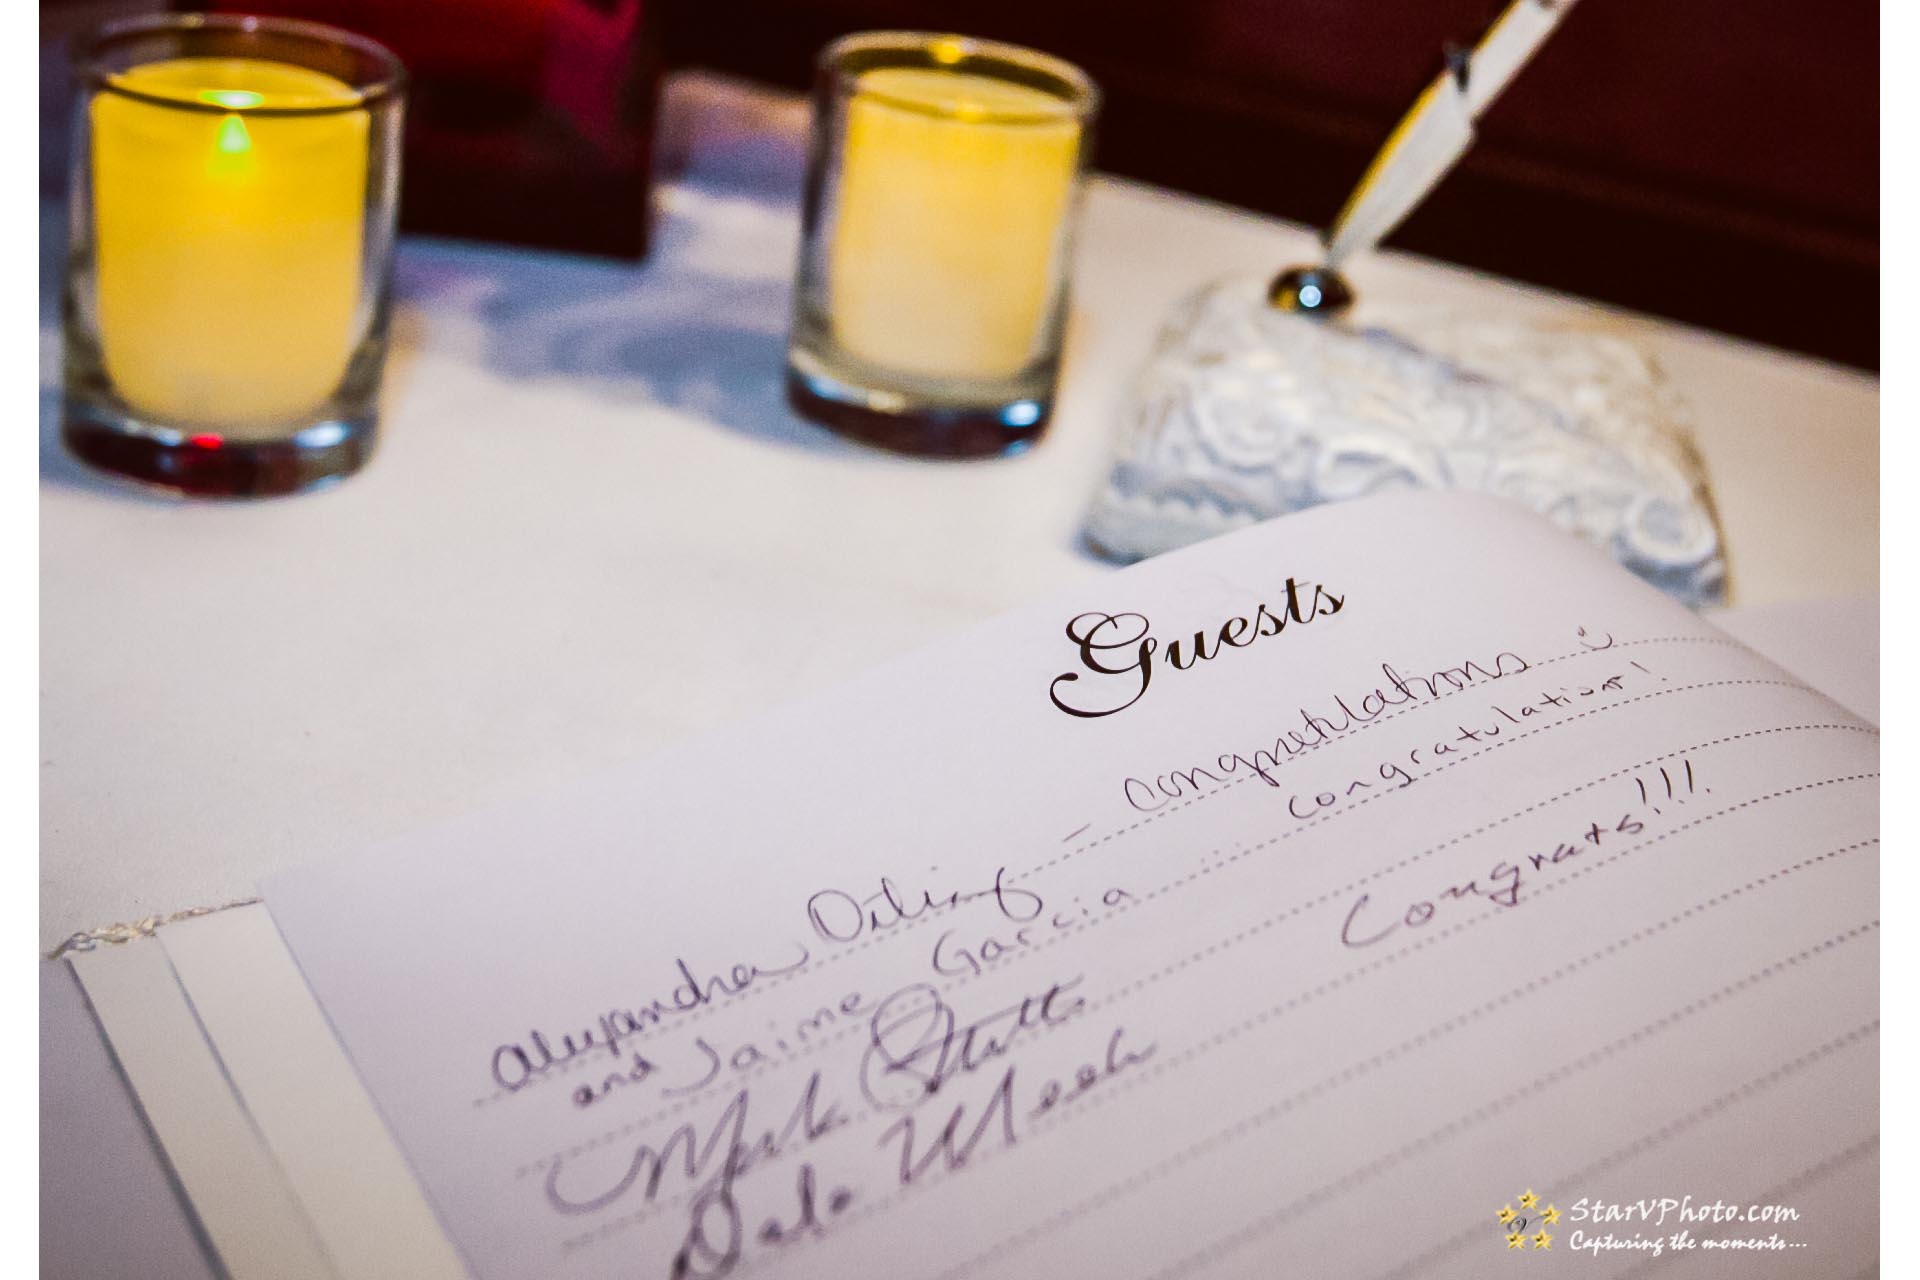 Guests
Alejandra – Congratulations
and Jaime Garcia congratulations!
Mark Congrats!!!
Dala
StarVPhoto.com
Capturing the moments...